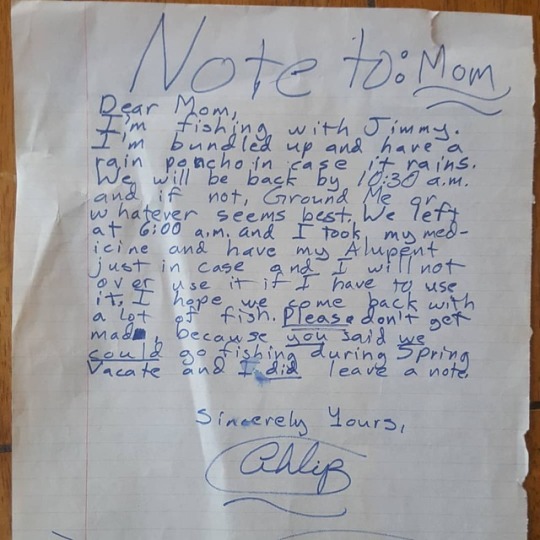 Note to: Mom
Dear Mom,
I'm fishing with Jimmy.
I'm bundled up and have a
rain poncho in case it rains.
We will be back by 10:30 a.m.
and if not, Ground Me or
whatever seems best. We left
at 6:00 a.m. and I took my med-
icine and have my Alupent
just in case and I will not
over use it if I have to use
it, I hope we come back with
a lot of fish. Please don't get
mad, because you said we
could go fishing during Spring
Vacate and I did leave a note.
Sincerely Yours,